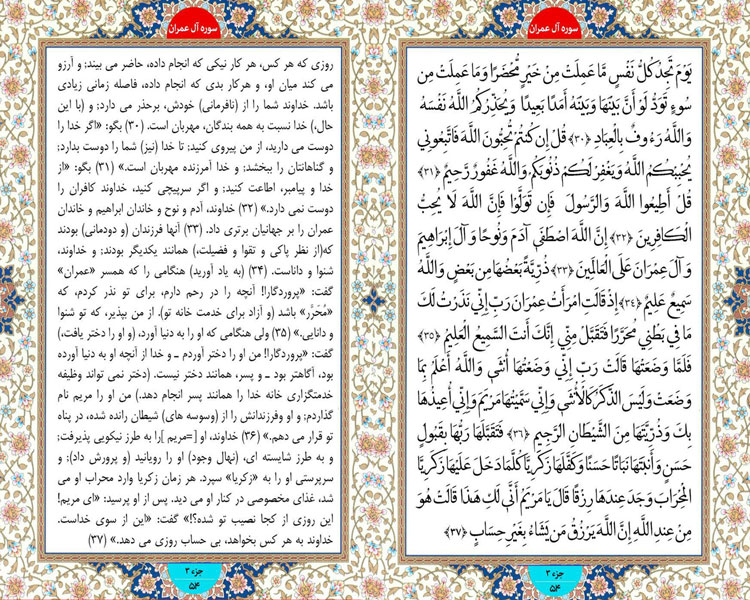 سوره آل عمران
يَوْمَ تَجِدُ كُلُّ نَفْسٍ مَّا عَمِلَتْ مِنْ خَيْرٍ مُّحْضَرًا وَمَا عَمِلَتْ مِن
سُوءٍ تَوَدُّ لَوْ أَنَّ بَيْنَهَا وَبَيْنَهُ أَمَدًا بَعِيدًا وَيُحَذِّرُكُمُ اللَّهُ نَفْسَهُ
وَاللَّهُ رَءُوفٌ بِالْعِبَادِ ﴿٣٠﴾ قُلْ إِن كُنتُمْ تُحِبُّونَ اللَّهَ فَاتَّبِعُونِي
يُحْبِبْكُمُ اللَّهُ وَيَغْفِرْ لَكُمْ ذُنُوبَكُمْ وَاللَّهُ غَفُورٌ رَّحِيمٌ ﴿٣١﴾
قُلْ أَطِيعُوا اللَّهَ وَالرَّسُولَ فَإِن تَوَلَّوْا فَإِنَّ اللَّهَ لَا يُحِبُّ
الْكَافِرِينَ ﴿٣٢﴾ إِنَّ اللَّهَ اصْطَفَى آدَمَ وَنُوحًا وَآلَ إِبْرَاهِيمَ
وَآلَ عِمْرَانَ عَلَى الْعَالَمِينَ ﴿٣٣﴾ ذُرِّيَّةً بَعْضُهَا مِن بَعْضٍ وَاللَّهُ
سَمِيعٌ عَلِيمٌ ﴿٣٤﴾ إِذْ قَالَتِ امْرَأَتُ عِمْرَانَ رَبِّ إِنِّي نَذَرْتُ لَكَ
مَا فِي بَطْنِي مُحَرَّرًا فَتَقَبَّلْ مِنِّي إِنَّكَ أَنتَ السَّمِيعُ الْعَلِيمُ ﴿٣٥﴾
فَلَمَّا وَضَعَتْهَا قَالَتْ رَبِّ إِنِّي وَضَعْتُهَا أُنثَى وَاللَّهُ أَعْلَمُ بِمَا
وَضَعَتْ وَلَيْسَ الذَّكَرُ كَالْأُنثَى وَإِنِّي سَمَّيْتُهَا مَرْيَمَ وَإِنِّي أُعِيذُهَا
بِكَ وَذُرِّيَّتَهَا مِنَ الشَّيْطَانِ الرَّجِيمِ ﴿٣٦﴾ فَتَقَبَّلَهَا رَبُّهَا بِقَبُولٍ
حَسَنٍ وَأَنبَتَهَا نَبَاتًا حَسَنًا وَكَفَّلَهَا زَكَرِيَّا كُلَّمَا دَخَلَ عَلَيْهَا زَكَرِيَّا
الْمِحْرَابَ وَجَدَ عِندَهَا رِزْقًا قَالَ يَا مَرْيَمُ أَنَّى لَكِ هَذَا قَالَتْ هُوَ
مِنْ عِندِ اللَّهِ إِنَّ اللَّهَ يَرْزُقُ مَن يَشَاءُ بِغَيْرِ حِسَابٍ ﴿٣٧﴾
جزء ۳
۵۴
سوره آل عمران
روزی که هر کس، هر کار نیکی که انجام داده، حاضر می بیند؛ و آرزو
می کند میان او، و هرکار بدی که انجام داده، فاصله زمانی زیادی
باشد. خداوند شما را از (نافرمانی) خودش، برحذر می دارد؛ و (با این
حال،) خدا نسبت به همه بندگان، مهربان است. (۳۰) بگو: «اگر خدا را
دوست می دارید، از من پیروی کنید؛ تا خدا (نیز) شما را دوست بدارد؛
و گناهانتان را ببخشد؛ و خدا آمرزنده مهربان است.» (۳۱) بگو: «از
خدا و پیامبر، اطاعت کنید؛ و اگر سرپیچی کنید، خداوند کافران را
دوست نمی دارد.» (۳۲) خداوند، آدم و نوح و خاندان ابراهیم و خاندان
عمران را بر جهانیان برتری داد. (۳۳) آنها فرزندان (و دودمانی) بودند
که(از نظر پاکی و تقوا و فضیلت،) همانند یکدیگر بودند؛ و خداوند،
شنوا و داناست. (۳۴) (به یاد آورید) هنگامی را که همسر «عمران»
گفت: «پروردگارا! آنچه را در رحم دارم، برای تو نذر کردم، که
«مُحَرَّر» باشد (و آزاد برای خدمت خانه تو). از من بپذیر، که تو شنوا
و دانایی.» (۳۵) ولی هنگامی که او را به دنیا آورد، (و او را دختر یافت،)
گفت: «پروردگارا! من او را دختر آوردم ـ و خدا از آنچه او به دنیا آورده
بود، آگاهتر بود ـ و پسر، همانند دختر نیست. (دختر نمی تواند وظیفه
خدمتگزاری خانه خدا را همانند پسر انجام دهد.) من او را مریم نام
گذاردم؛ و او وفرزندانش را از (وسوسه های) شیطان رانده شده، در پناه
تو قرار می دهم.» (۳۶) خداوند، او [=مریم ]را به طرز نیکویی پذیرفت؛
و به طرز شایسته ای، (نهال وجود) او را رویانید (و پرورش داد)؛ و
سرپرستی او را به «زکریا» سپرد. هر زمان زکریا وارد محراب او می
شد، غذای مخصوصی در کنار او می دید. پس از او پرسید: «ای مریم!
این روزی از کجا نصیب تو شده؟!» گفت: «این از سوی خداست.
خداوند به هر کس بخواهد، بی حساب روزی می دهد.» (۳۷)
جزء ۳
۵۴